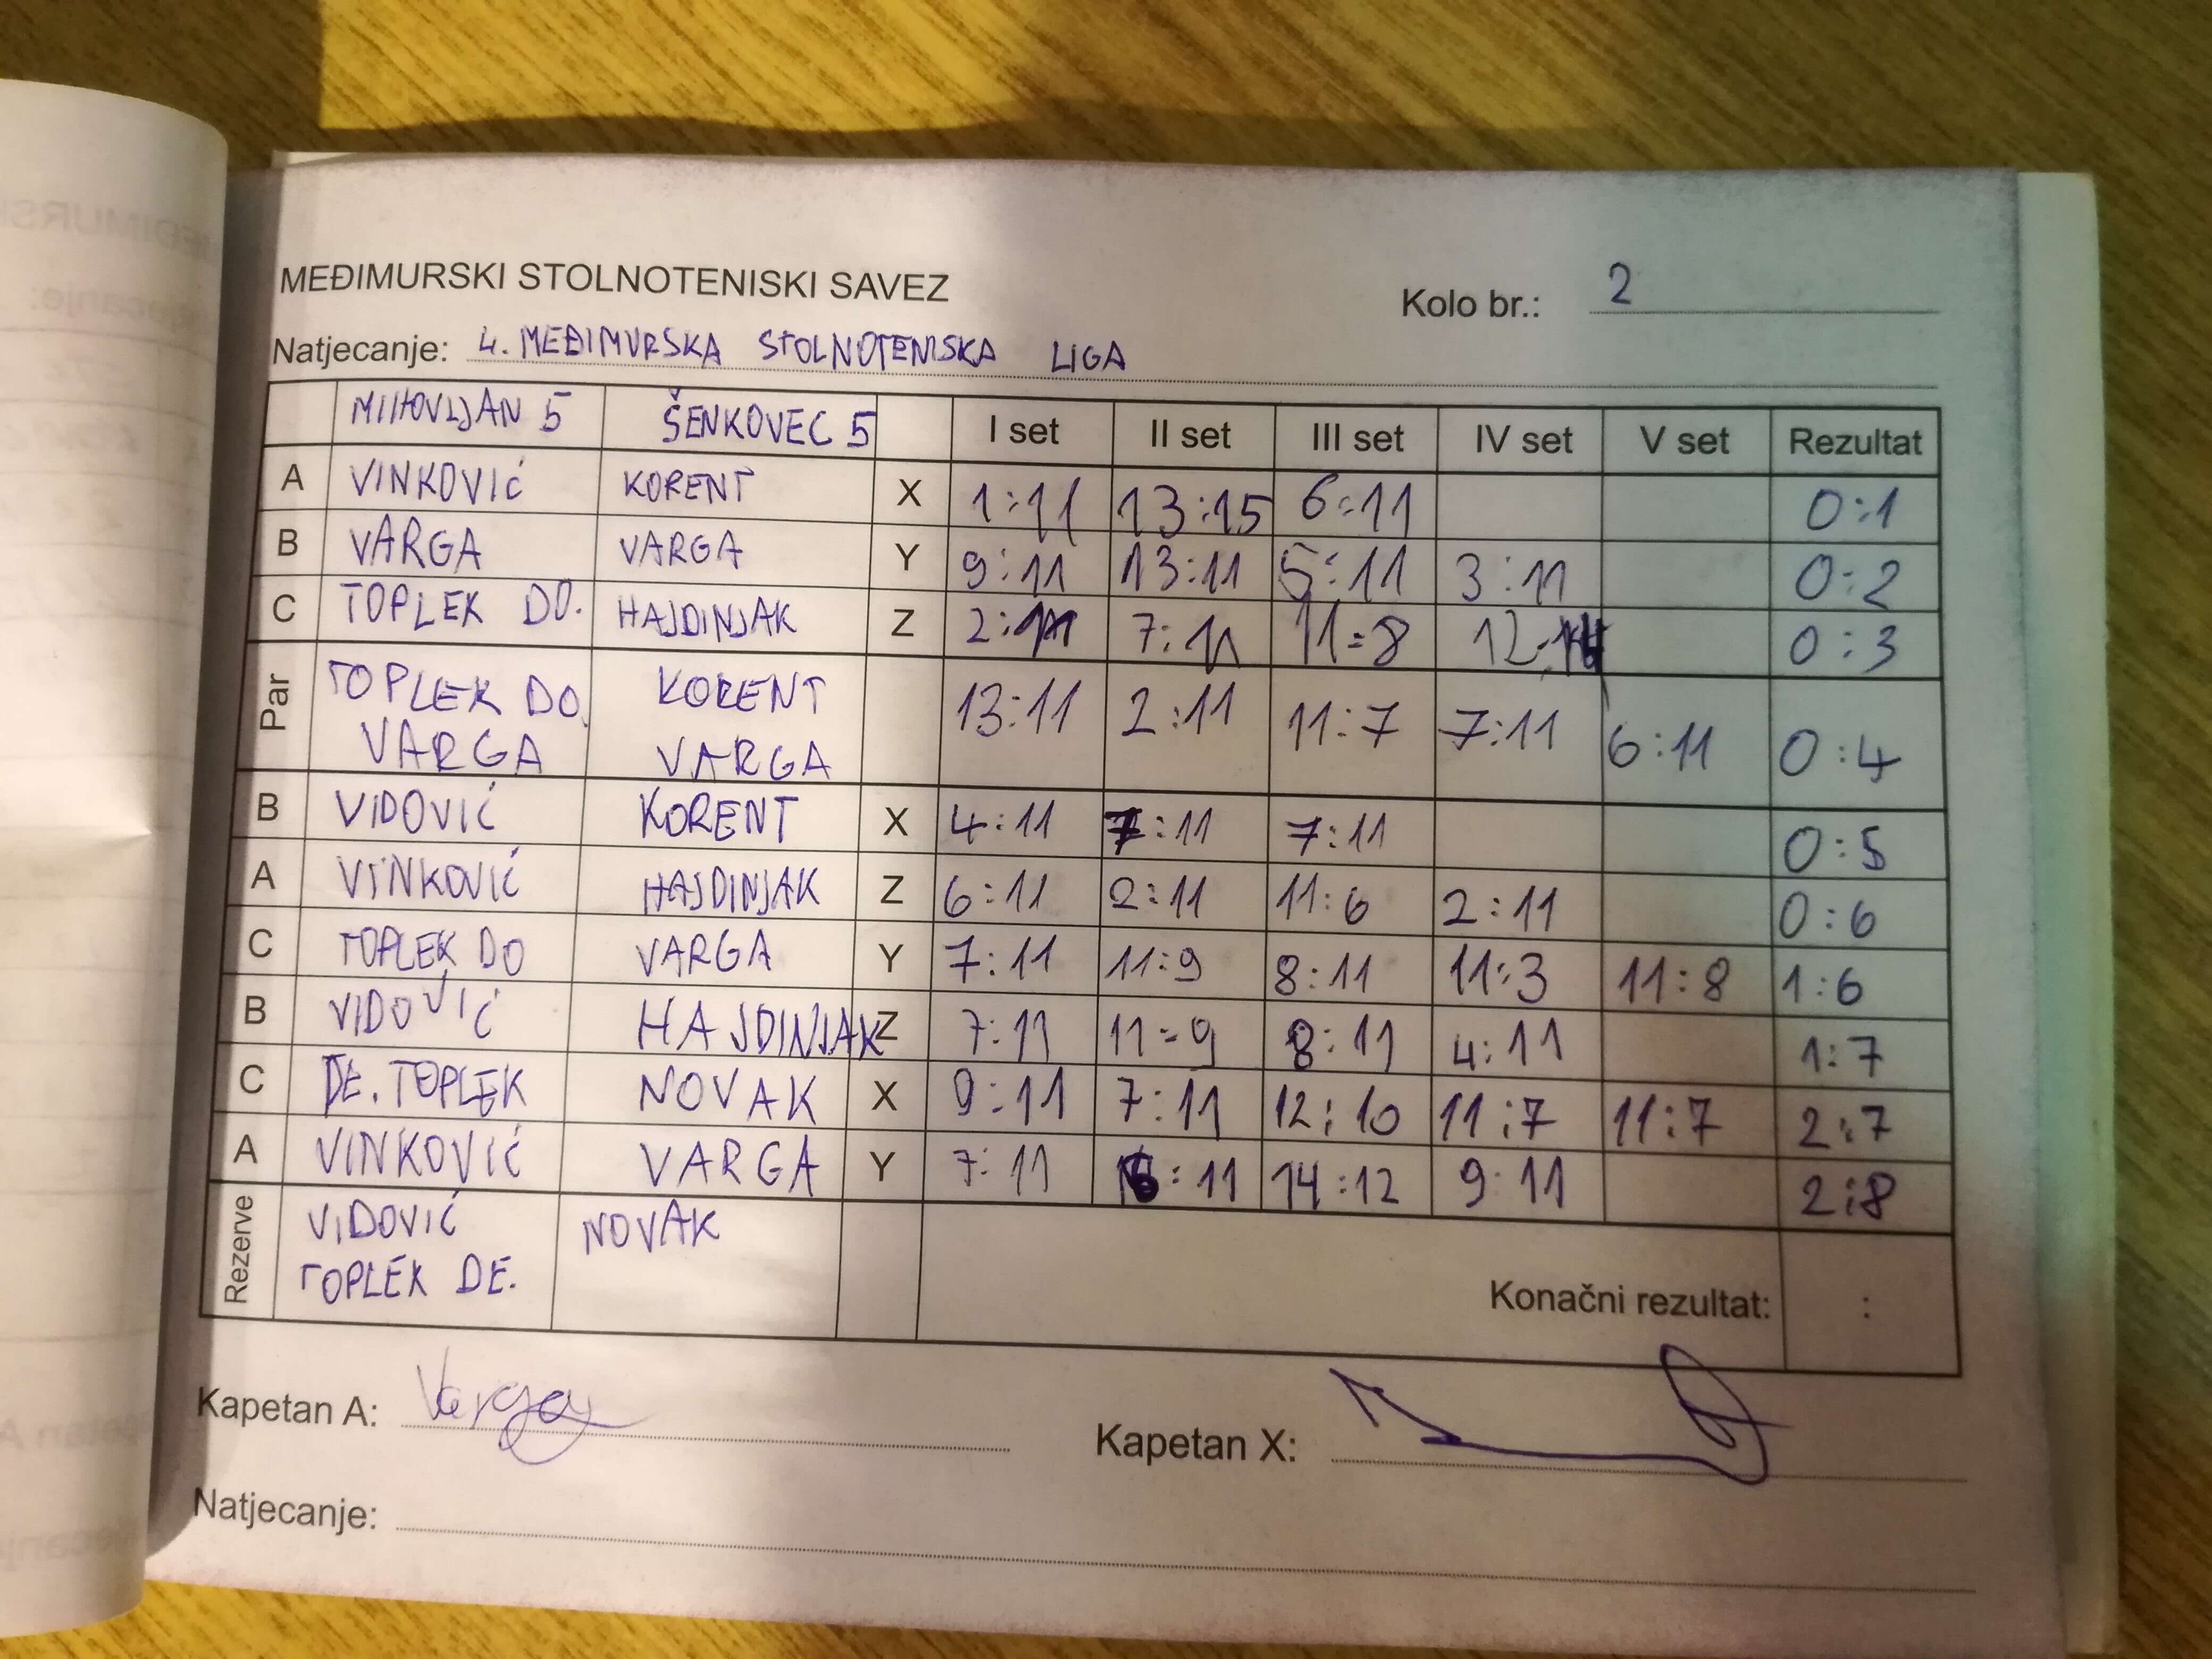 MEĐIMURSKI STOLNOTENISKI SAVEZ
Kolo br.: 2
Natjecanje: 4. MEĐIMURSKA STOLNOTENISKA LIGA
MIHOVLJAN 5 ŠENKOVEC 5 I set II set III set IV set V set Rezultat
A VINKOVIĆ KORENT X 1:11 13:15 6:11 0:1
B VARGA VARGA Y 9:11 13:11 5:11 3:11 0:2
C TOPLEK DO. HAJDINJAK Z 2:11 7:11 11:8 12:14 0:3
Par TOPLEK DO. KORENT 13:11 2:11 11:7 7:11 6:11 0:4
VARGA VARGA
B VIDOVIĆ KORENT X 4:11 7:11 7:11 0:5
A VINKOVIĆ HAJDINJAK Z 6:11 2:11 11:6 2:11 0:6
C TOPLEK DO VARGA Y 7:11 11:9 8:11 11:3 11:8 1:6
B VIDOVIĆ HAJDINJAK Z 7:11 11:9 8:11 4:11 1:7
C DE. TOPLEK NOVAK X 9:11 7:11 12:10 11:7 11:7 2:7
A VINKOVIĆ VARGA Y 7:11 :11 14:12 9:11 2:8
Rezerve VIDOVIĆ NOVAK
TOPLEK DE.
Konačni rezultat: :
Kapetan A: Varga
Kapetan X:
Natjecanje: